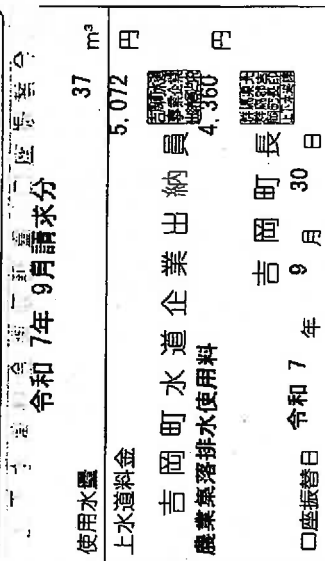 令和 7年 9月請求分
使用水量 37 m³
上水道料金 5,072 円
吉岡町水道企業出納員
農業集落排水使用料 4,360 円
吉岡町長
口座振替日 令和 7 年 9 月 30 日